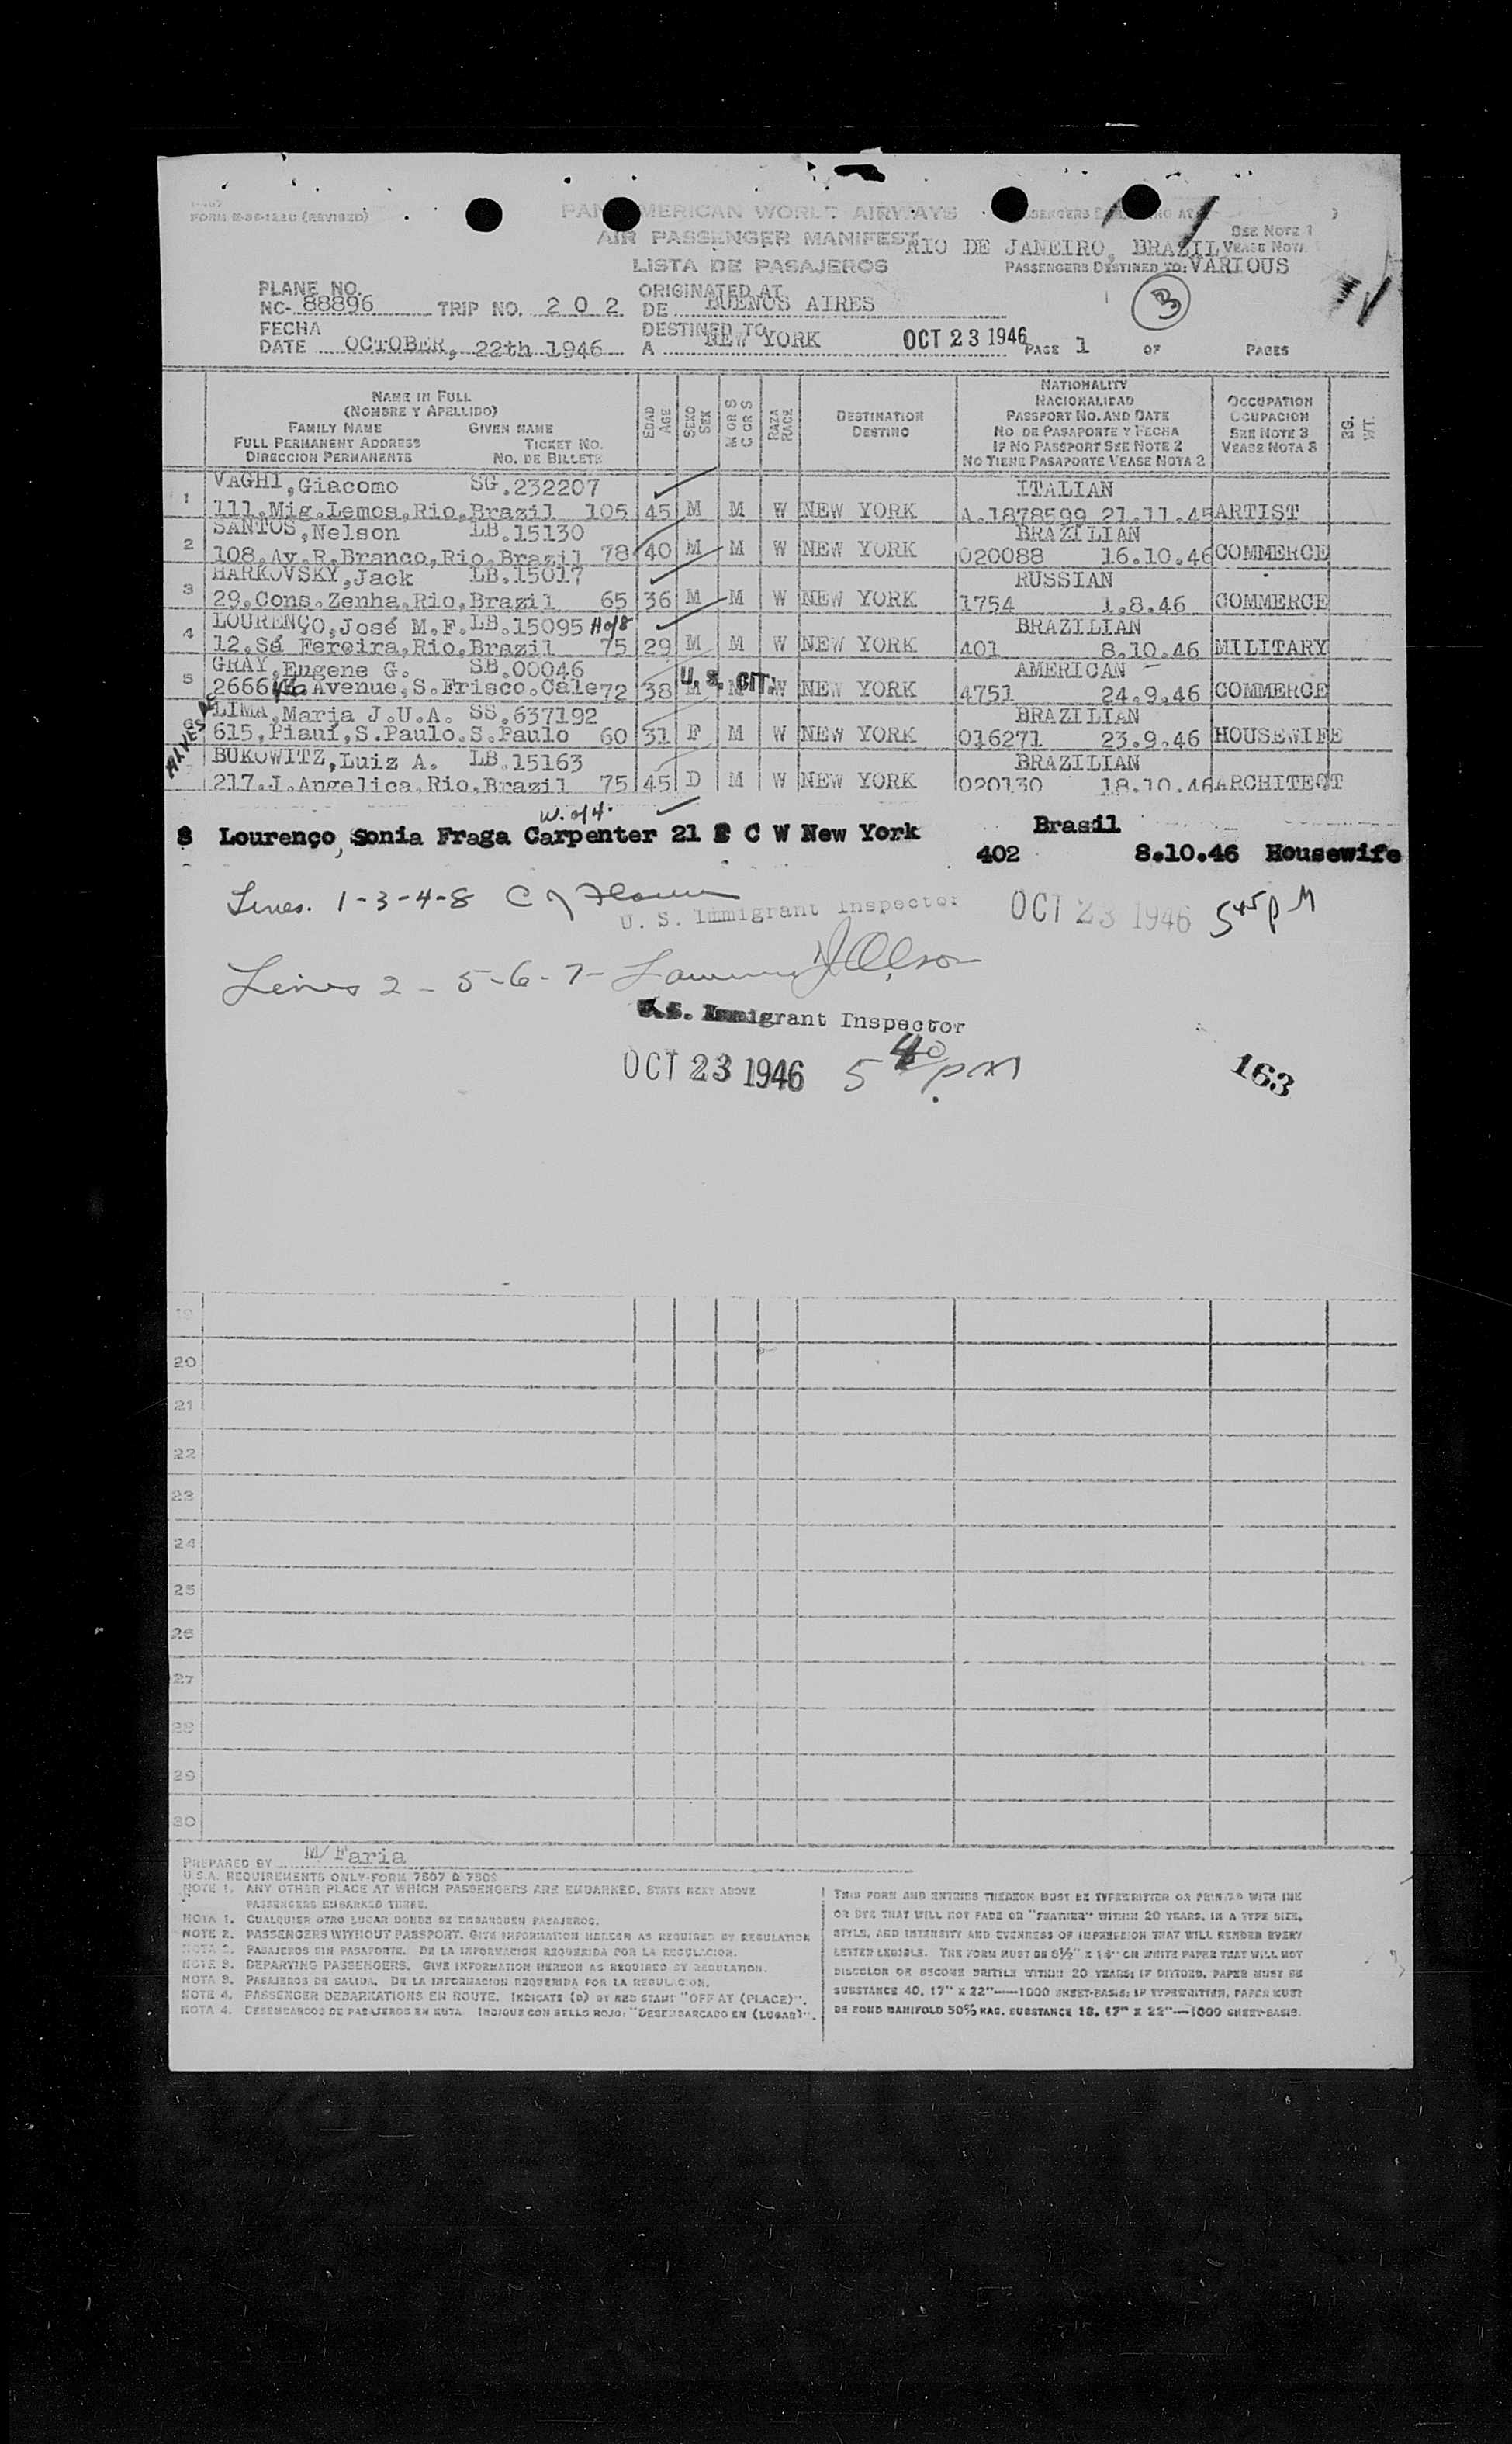 I-467
FORM M-36-122U (REVISED)
PAN AMERICAN WORLD AIRWAYS
AIR PASSENGER MANIFEST
RIO DE JANEIRO, BRAZIL
SEE NOTE 1
VEASE NOTA
LISTA DE PASAJEROS
PASSENGERS DESTINED TO: VARIOUS
PLANE NO.
NC- 88896 TRIP NO. 2 0 2
ORIGINATED AT
DE BUENOS AIRES
3
FECHA
DATE OCTOBER, 22th 1946
DESTINED TO
A NEW YORK
OCT 23 1946
PAGE 1 OF PAGES
NAME IN FULL
(NOMBRE Y APELLIDO)
FAMILY NAME GIVEN NAME
FULL PERMANENT ADDRESS TICKET NO.
DIRECCION PERMANENTE NO. DE BILLETE
EDAD AGE
SEXO SEX
M OR S C OR S
RAZA RACE
DESTINATION
DESTINO
NATIONALITY
NACIONALIDAD
PASSPORT NO. AND DATE
NO. DE PASAPORTE Y FECHA
IF NO PASSPORT SEE NOTE 2
NO TIENE PASAPORTE VEASE NOTA 2
OCCUPATION
OCUPACION
SEE NOTE 3
VEASE NOTA 3
WT.
VAGHI, Giacomo SG.232207 ITALIAN
1 111.Mig.Lemos.Rio.Brazil 105 45 M M W NEW YORK A.1878599 21.11.45 ARTIST
SANTOS, Nelson LB.15130 BRAZILIAN
2 108.Av.R.Branco.Rio.Brazil 78 40 M M W NEW YORK 020088 16.10.46 COMMERCE
HARKOVSKY, Jack LB.15017 RUSSIAN
3 29.Cons.Zenha.Rio.Brazil 65 36 M M W NEW YORK 1754 1.8.46 COMMERCE
LOURENÇO, José M.F. LB.15095 H of 8 BRAZILIAN
4 12.Sá Fereira.Rio.Brazil 75 29 M M W NEW YORK 401 8.10.46 MILITARY
GRAY, Eugene G. SB.00046 U. S. CIT. AMERICAN
5 2666 Avenue, S.Frisco.Cale 72 38 M M W NEW YORK 4751 24.9.46 COMMERCE
LIMA, Maria J.U.A. SS.637192 BRAZILIAN
6 615, Piaui, S.Paulo.S.Paulo 60 31 F M W NEW YORK 016271 23.9.46 HOUSEWIFE
BUKOWITZ, Luiz A. LB.15163 BRAZILIAN
7 217.J.Angelica.Rio.Brazil 75 45 D M W NEW YORK 020130 18.10.46 ARCHITECT
W. of 4.
8 Lourenço, Sonia Fraga Carpenter 21 F C W New York Brasil
402 8.10.46 Housewife
Lines. 1-3-4-8
U. S. Immigrant Inspector
OCT 23 1946 5 45 p M
Lines 2 - 5-6-7- J Olson
U.S. Immigrant Inspector
OCT 23 1946 5 40 pm
163
19
20
21
22
23
24
25
26
27
28
29
30
PREPARED BY M/Faria
U.S.A. REQUIREMENTS ONLY-FORM 7507 & 7509
NOTE 1. ANY OTHER PLACE AT WHICH PASSENGERS ARE EMBARKED, STATE NEXT ABOVE
PASSENGERS EMBARKED THERE.
NOTA 1. CUALQUIER OTRO LUGAR DONDE SE EMBARQUEN PASAJEROS.
NOTE 2. PASSENGERS WITHOUT PASSPORT. GIVE INFORMATION HEREON AS REQUIRED BY REGULATION
NOTA 2. PASAJEROS SIN PASAPORTE. DE LA INFORMACION REQUERIDA POR LA REGULACION.
NOTE 3. DEPARTING PASSENGERS. GIVE INFORMATION HEREON AS REQUIRED BY REGULATION.
NOTA 3. PASAJEROS DE SALIDA. DE LA INFORMACION REQUERIDA POR LA REGULACION.
NOTE 4. PASSENGER DEBARKATIONS EN ROUTE. INDICATE (D) BY RED STAMP "OFF AT (PLACE)".
NOTA 4. DESEMBARCOS DE PASAJEROS EN RUTA. INDIQUE CON SELLO ROJO: "DESEMBARCADO EN (LUGAR)".
THIS FORM AND ENTRIES THEREON MUST BE TYPEWRITTEN OR PRINTED WITH INK
OR DYE THAT WILL NOT FADE OR "FEATHER" WITHIN 20 YEARS, IN A TYPE SIZE,
STYLE, AND INTENSITY AND EVENNESS OF IMPRESSION THAT WILL RENDER EVERY
LETTER LEGIBLE. THE FORM MUST BE 8½" X 14" ON WHITE PAPER THAT WILL NOT
DISCOLOR OR BECOME BRITTLE WITHIN 20 YEARS; IF DITTOED, PAPER MUST BE
SUBSTANCE 40, 17" X 22"—1000 SHEET-BASIS; IF TYPEWRITTEN, PAPER MUST
BE BOND MANIFOLD 50% RAG. SUBSTANCE 18, 17" X 22"—1000 SHEET-BASIS.